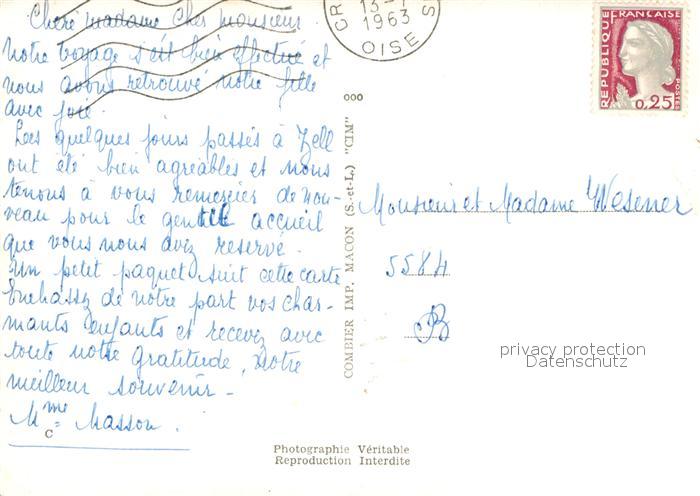 Chère madame Cher monsieur
Notre voyage s'est bien effectué et
nous avons retrouvé notre fille
avec joie.
Les quelques jours passés à Zell
ont été bien agréables et nous
tenons à vous remercier de nou-
veau pour le gentil accueil
que vous nous avez reservé.
Un petit paquet suit cette carte
Embrassez de notre part vos char-
mants enfants et recevez avec
toute notre gratitude, notre
meilleur souvenir -
Mme Masson.
C
13-7
1963
OISE
REPUBLIQUE FRANÇAISE
0,25
POSTES
ooo
COMBIER IMP. MACON (S.-et-L.) "CIM"
Monsieur et Madame Wesener
5584
B
privacy protection
Datenschutz
Photographie Véritable
Reproduction Interdite